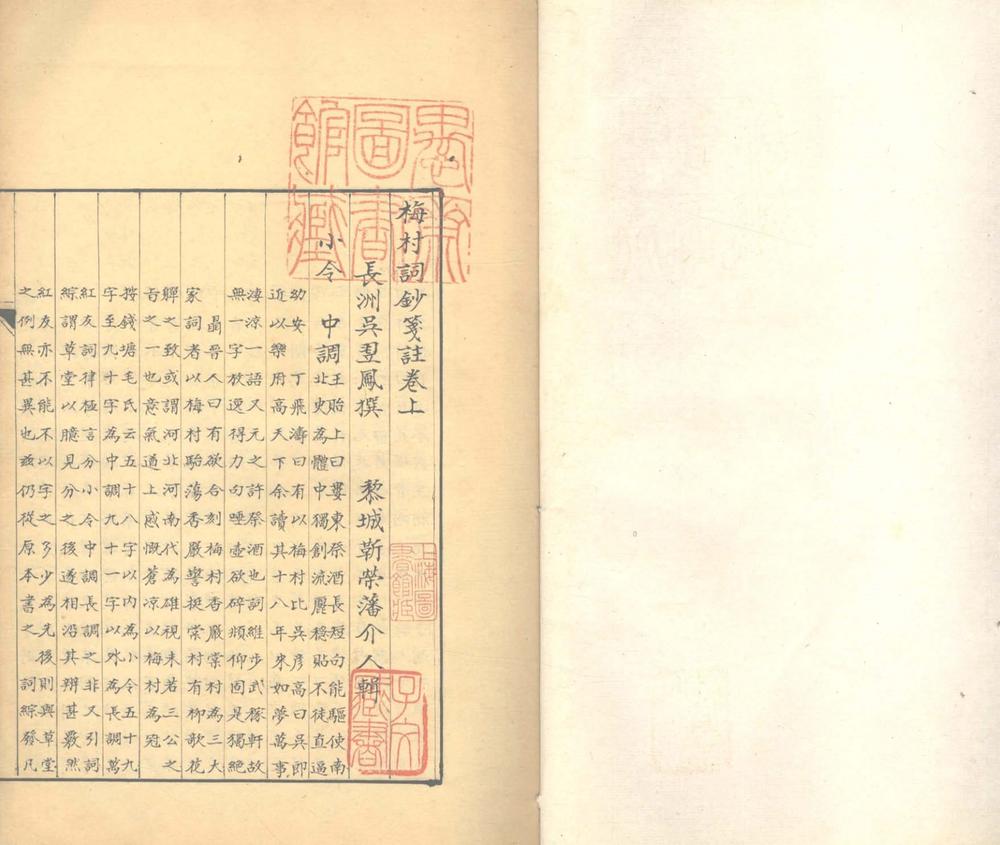 梅村詞鈔箋註卷上
長洲吳翌鳳撰 黎城靳榮藩介人輯
小令 中調
王貽上曰婁東祭酒長短句能驅使南
北史為體中獨創流麗穩貼不徒直逼
幼安 丁飛濤曰有以梅村比吳彥高曰吳郎
近以樂府高天下余讀其十八年來如夢萬事
淒涼一語又元之許祭酒也詞維步武稼軒故
無一字放逸得力向唾壺欲碎頫仰固是獨絕
聶晉人曰有欲合刻梅村香嚴棠村為三大
家詞者以梅村駘蕩香嚴警挺棠村有柳欹花
嚲之致或謂河北河南代為雄視未若三公之
旨之一也意氣遒上感慨蒼凉以梅村為冠
按錢塘毛氏云五十八字以內為小令五十九
字至九十字為中調九十一字以外為長調萬
紅友詞律極言分小令中調長調之非又引詞
綜謂草堂以臆見分之後遂相沿其辨甚覈然
紅友亦不能不以字之多少為先後則與草堂
之例無甚異也茲仍從原本書之 詞綜發凡
圖書館藏
上海圖書館臧
藏書